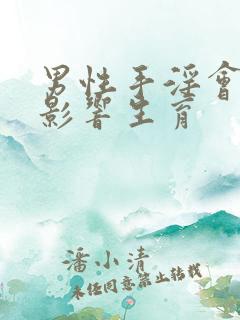 男性手淫會
影響生育
潘小清
未任同意禁止轉載